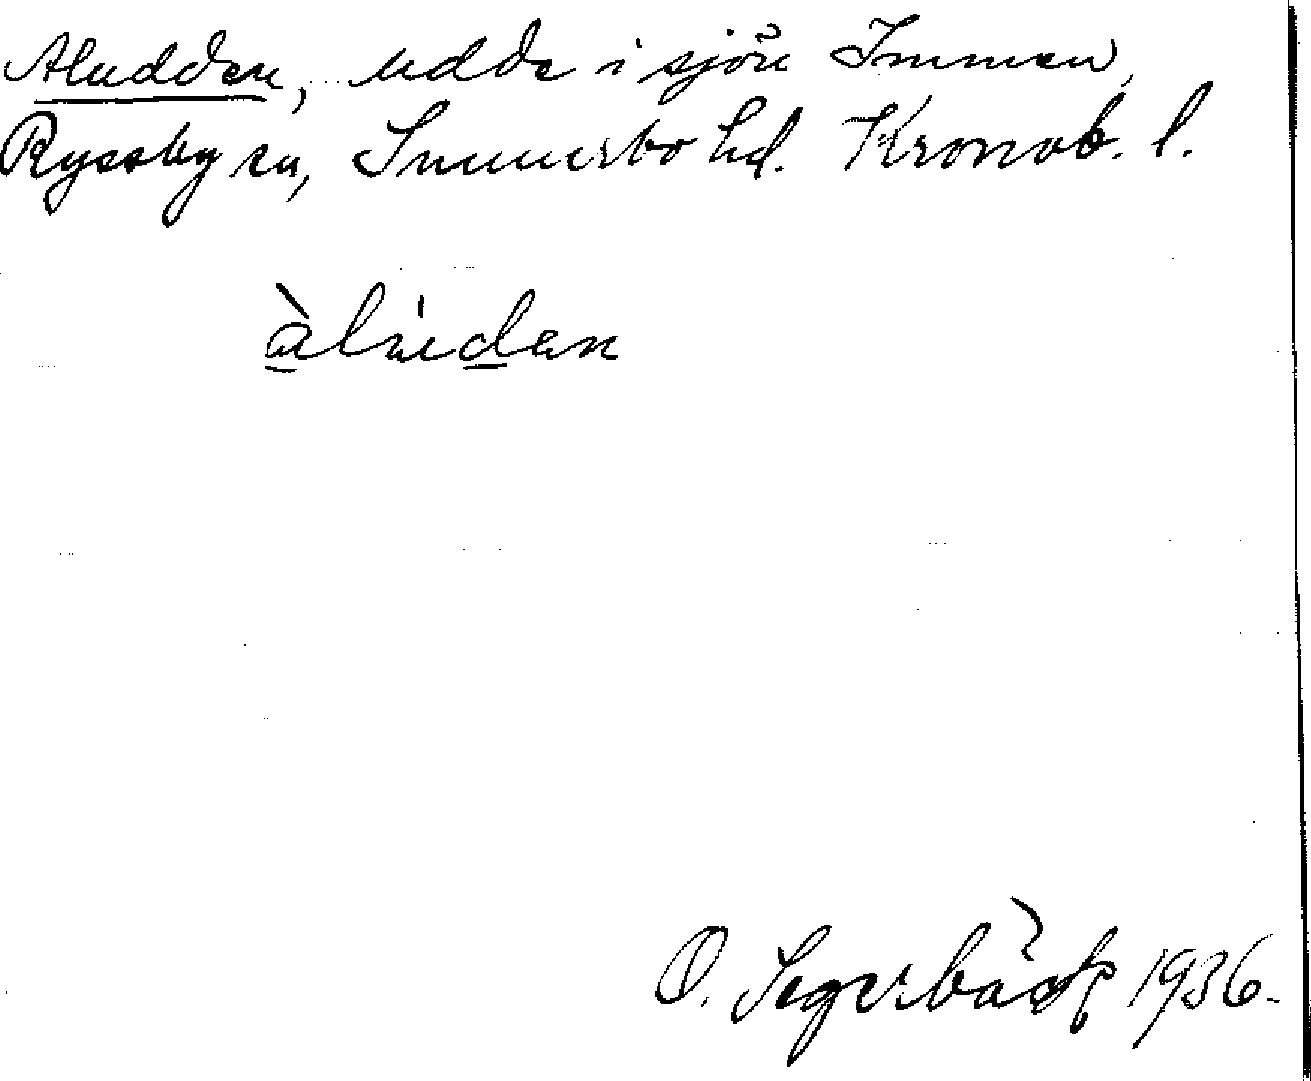 Aludden, udde i sjön Immen,
Ryssby sn, Sunnerbo hd. Kronob. l.
àlúdan
O. Segerbäck 1936.